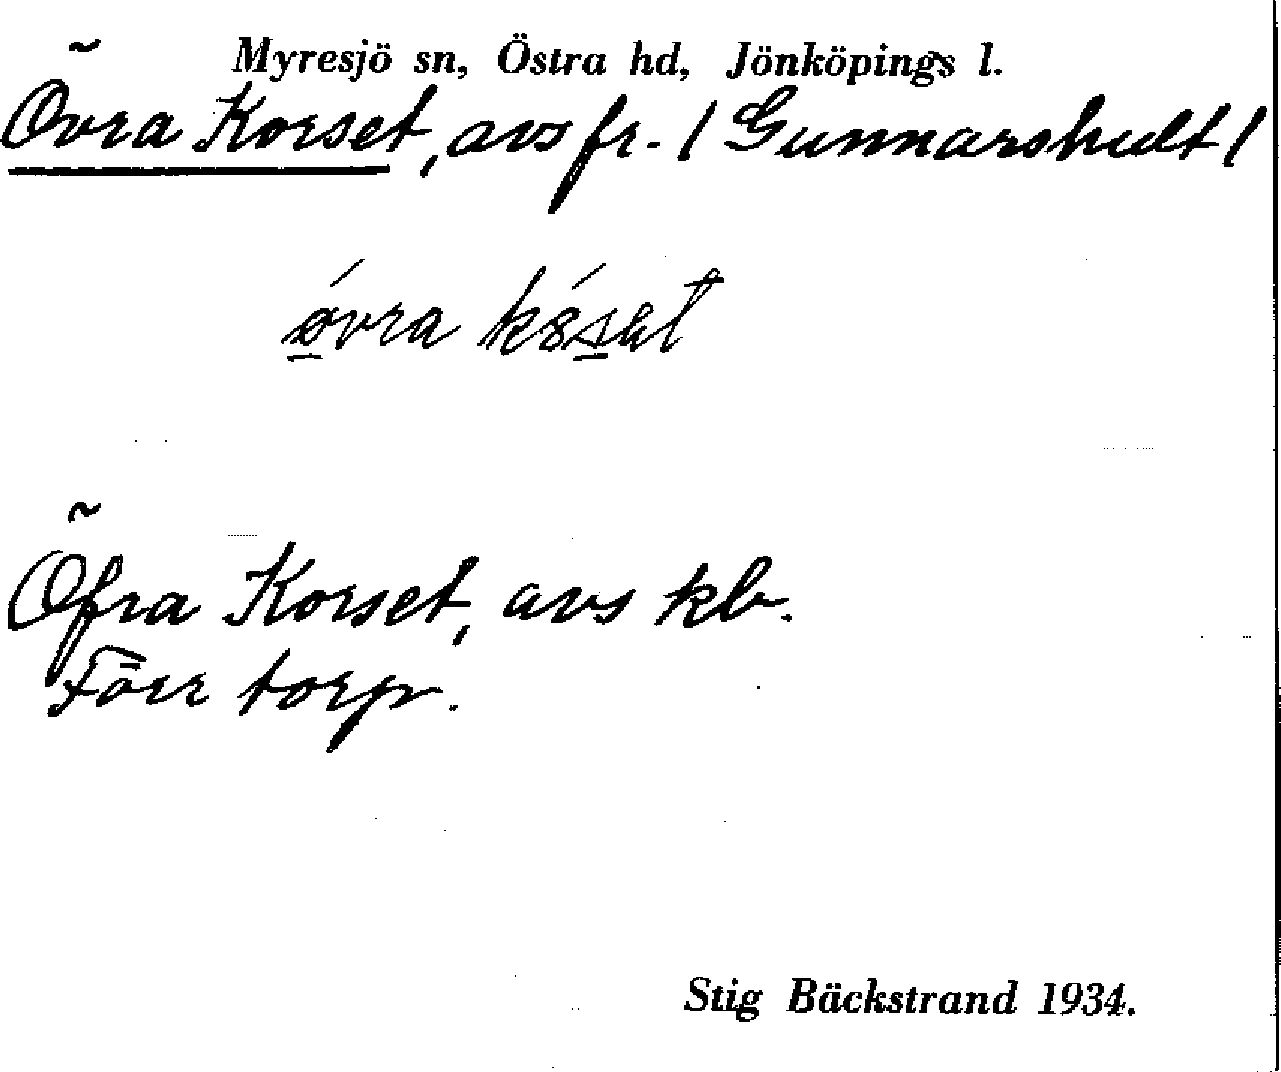 Myresjö sn, Östra hd, Jönköpings l.
Övra Korset, avs fr. / Gunnarshult /
Öfra Korset, avs kb.
Förr torp.
Stig Bäckstrand 1934.